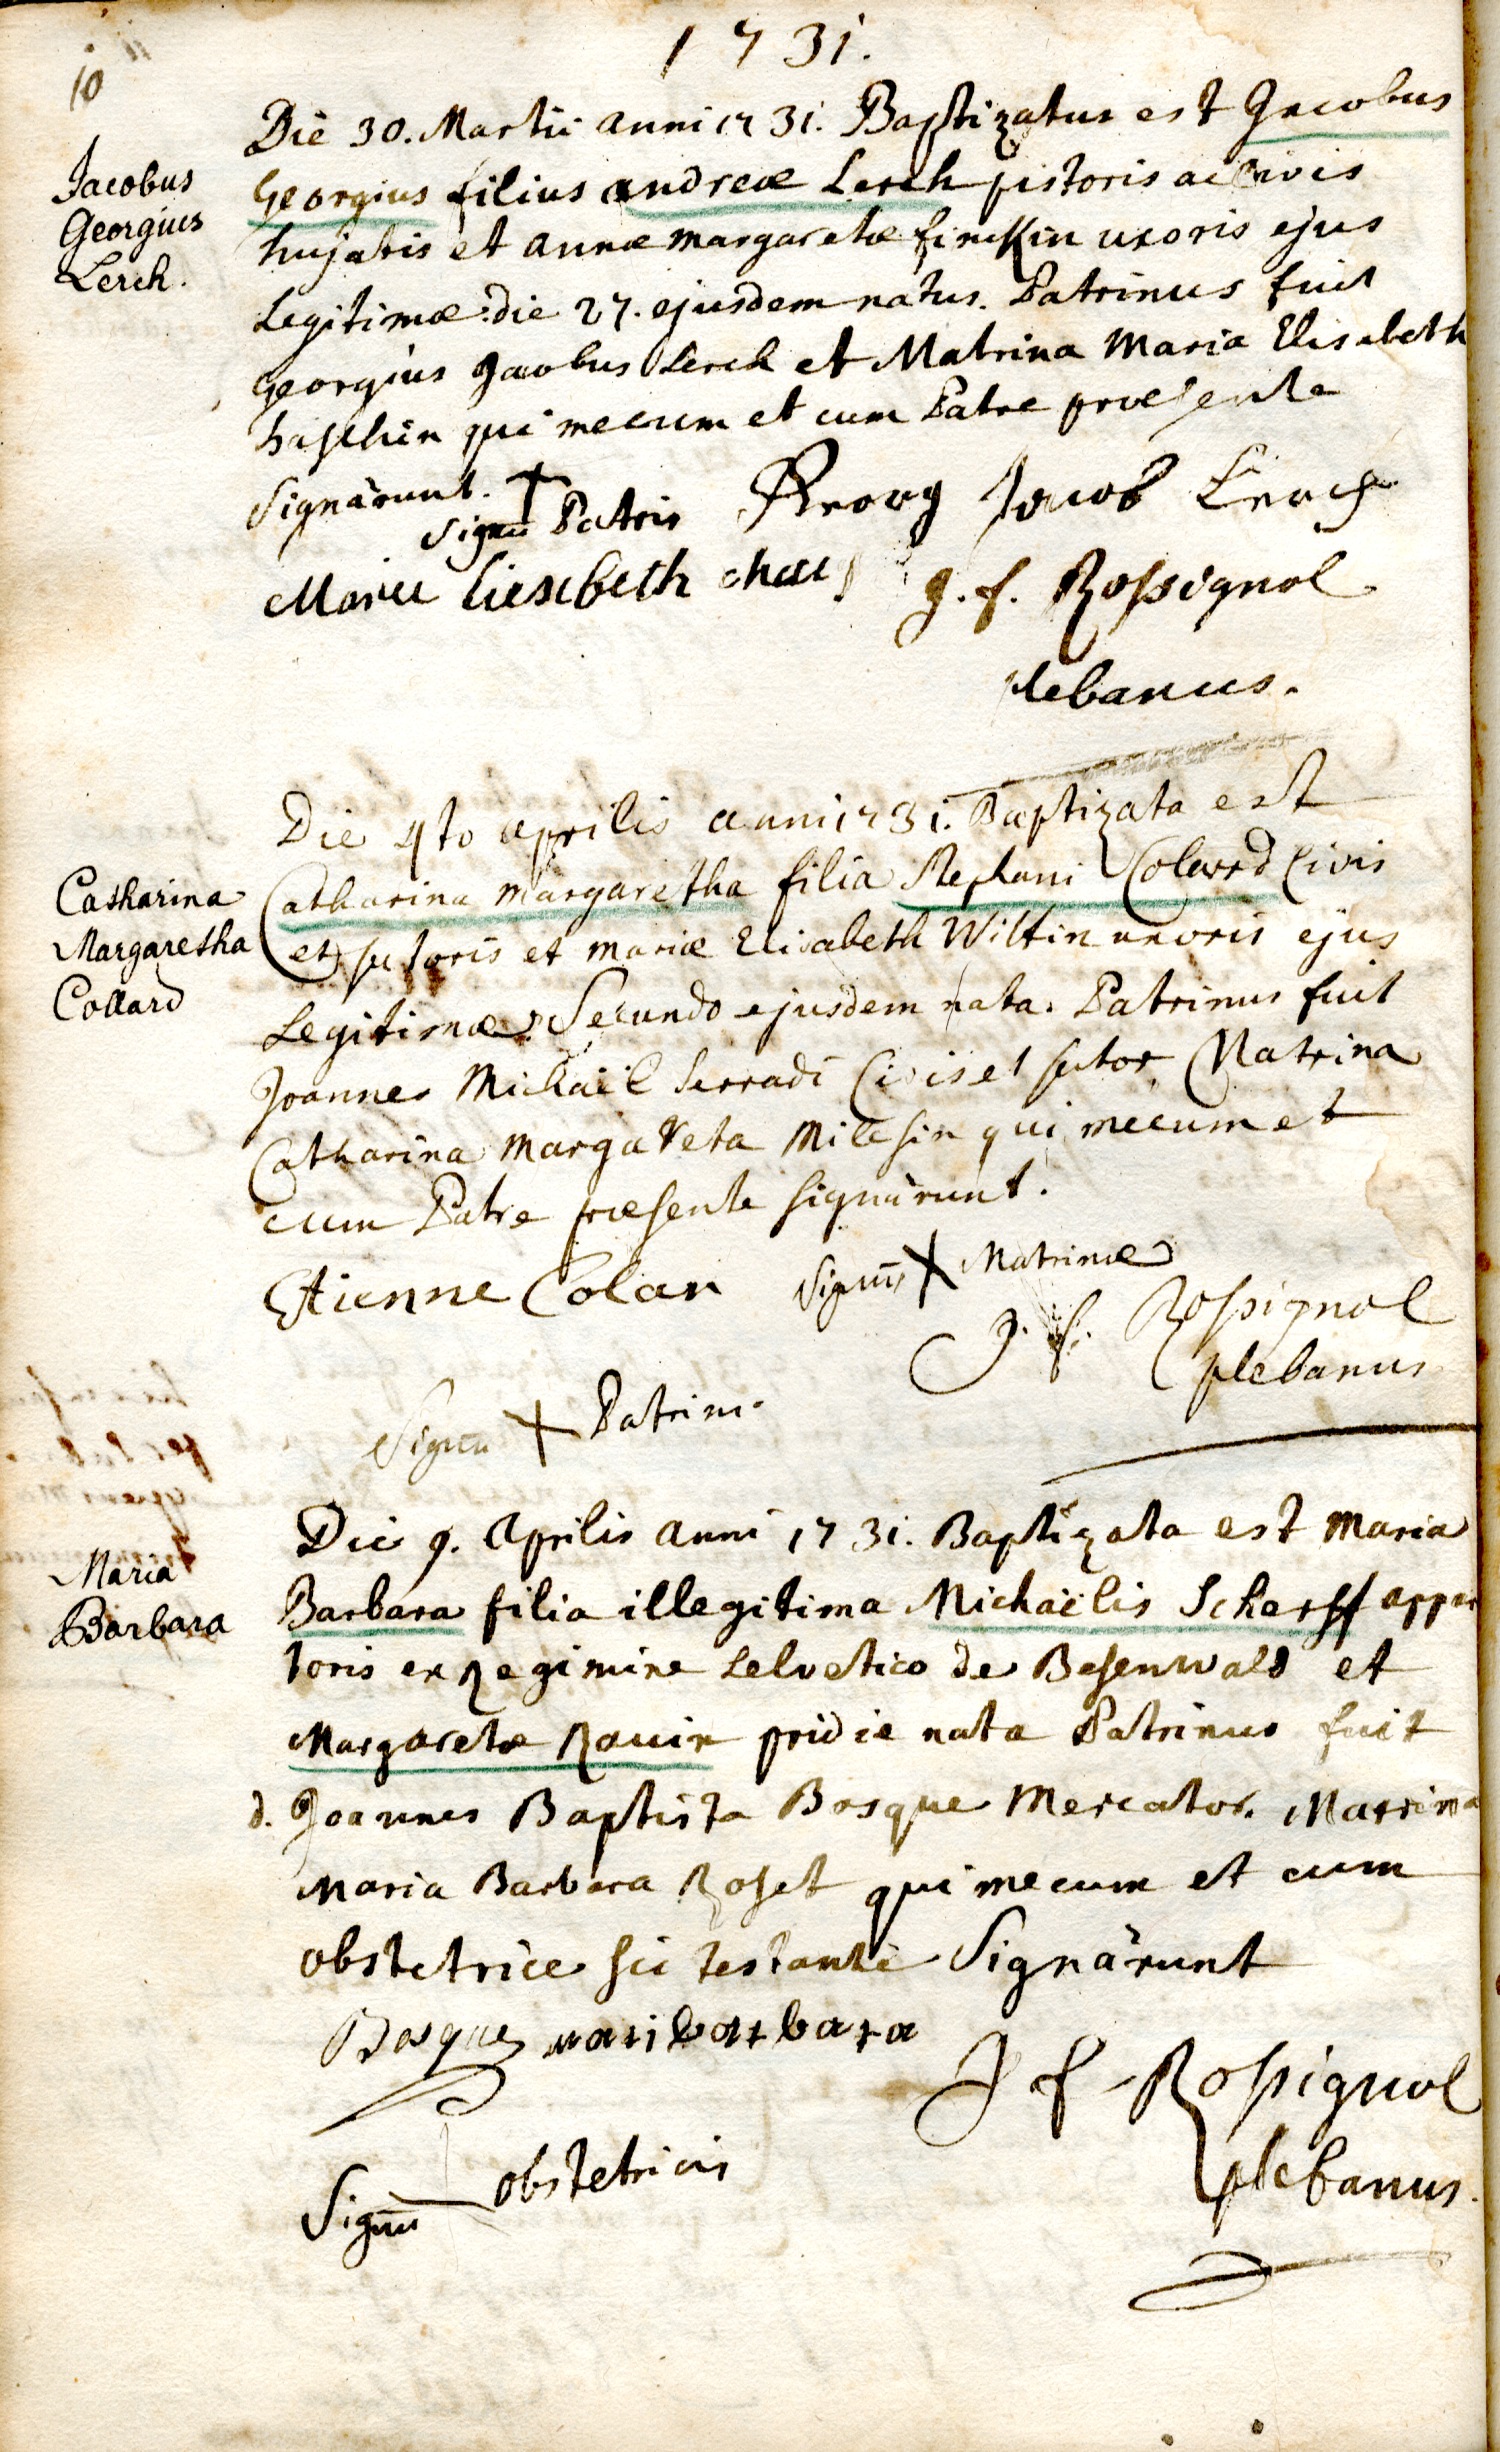 1731.
10
Jacobus
Georgius
Lerch.
Die 30. Martii anni 1731. Baptizatus est Jacobus
Georgius filius andreæ Lerch pistoris ac civis
hujatis et annæ margaretæ finckin uxoris ejus
Legitimæ. die 27. ejusdem natus. Patrinus fuit
georgius Jacobus Lerch et Matrina Maria Elisabeth
haschin qui mecum et cum Patre præsente
Signârunt.
Signū Patris
Georg Jacob Lerch
Marie liesabeth
J. f. Rossignol
plebanus.
Catharina
Margaretha
Collard
Die 4to aprilis anni 1731. Baptizata est
Catharina margaretha filia Stephani Colard Civis
et sutoris et mariæ Elisabeth Wiltin uxoris ejus
Legitimæ. Secundo ejusdem nata. Patrinus fuit
Joannes Michaël Serradi Civis et sutor Matrina
Catharina Margareta Milesin qui mecum et
cum Patre præsente signârunt.
Etienne Colar
Signū Matrinæ
J. f. Rossignol
plebanus
Signū Patrini
Maria
Barbara
Die 9. Aprilis anni 1731. Baptizata est Maria
Barbara filia illegitima Michaëlis Scherff
toris ex Regimine Helvetico de Besenwald et
Margaretæ Rauin pridie nata Patrinus fuit
d. Joannes Baptista Bosque Mercator. Matrina
Maria Barbara Roset qui mecum et cum
obstetrice sic testante Signârunt
Bosque maribarbara
J f Rossignol
plebanus.
Signū obstetricis